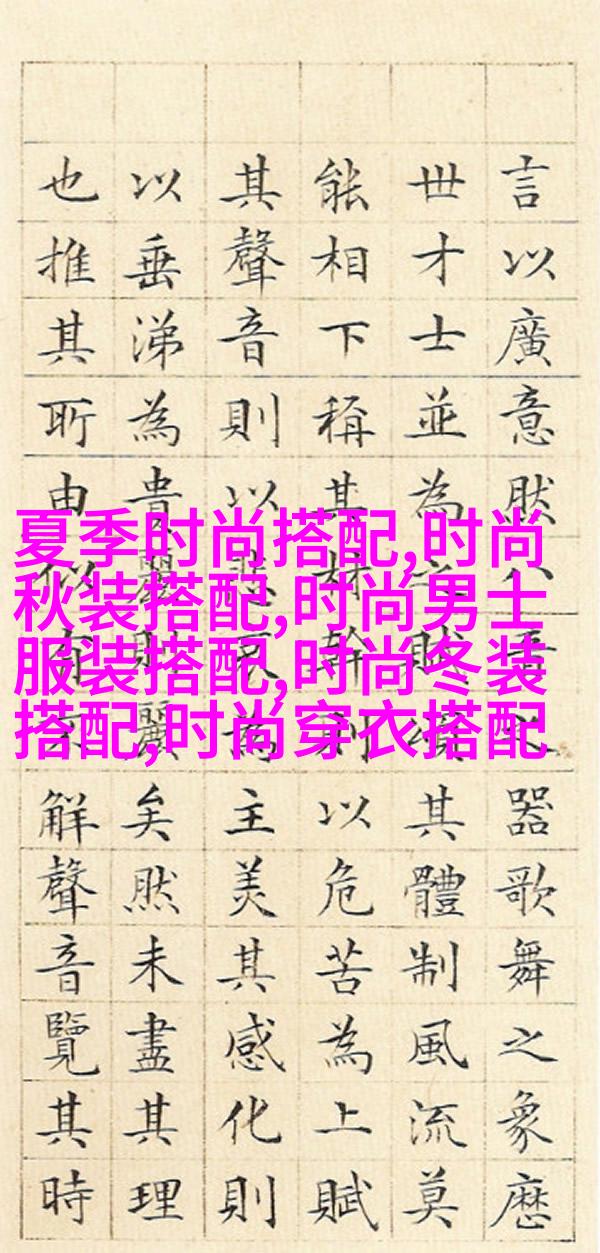 言以廣意然八音之器歌舞之象歷
世才士並為之賦頌其體制風流莫
能相下稱其材幹則以危苦為上賦
其聲音則以悲哀為主美其感化則
以垂涕為貴麗則麗矣然未盡其理
也推其所由似有不解聲音覽其時
夏季时尚搭配,时尚
秋装搭配,时尚男士
服装搭配,时尚冬装
搭配,时尚穿衣搭配